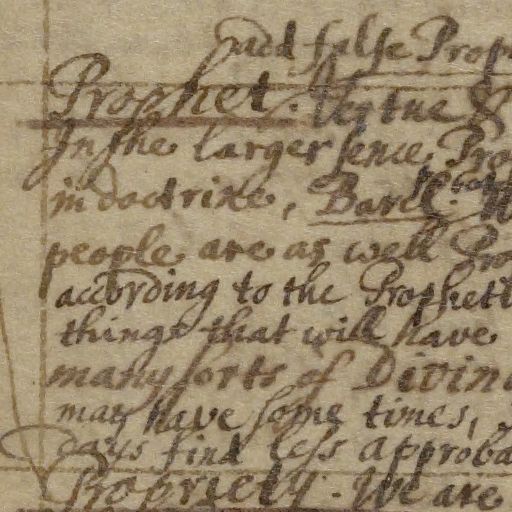 add false Prop
Prophet. Vertue &
In the larger sence Pro
in doctrine, Barcl.
people are as well Pro
according to the Prophett
things that will have
many sorts of Divin
may have some times,
days find less approba
Propriety. We are